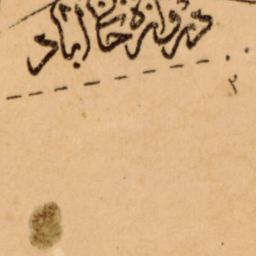 دروازهٔ خان آباد
۳